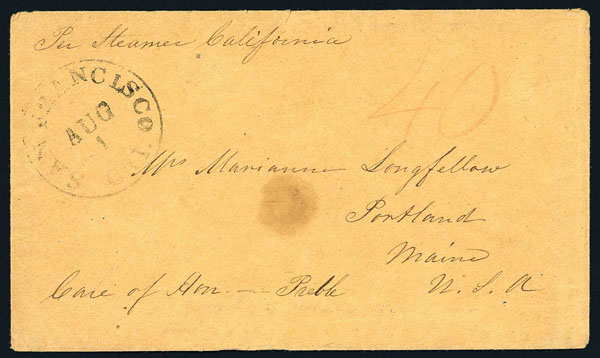 Per Steamer California
SAN FRANCISCO CAL.
AUG
1
40
Mrs Marianne Longfellow
Portland
Maine
Care of Hon. — Preble
U. S. A